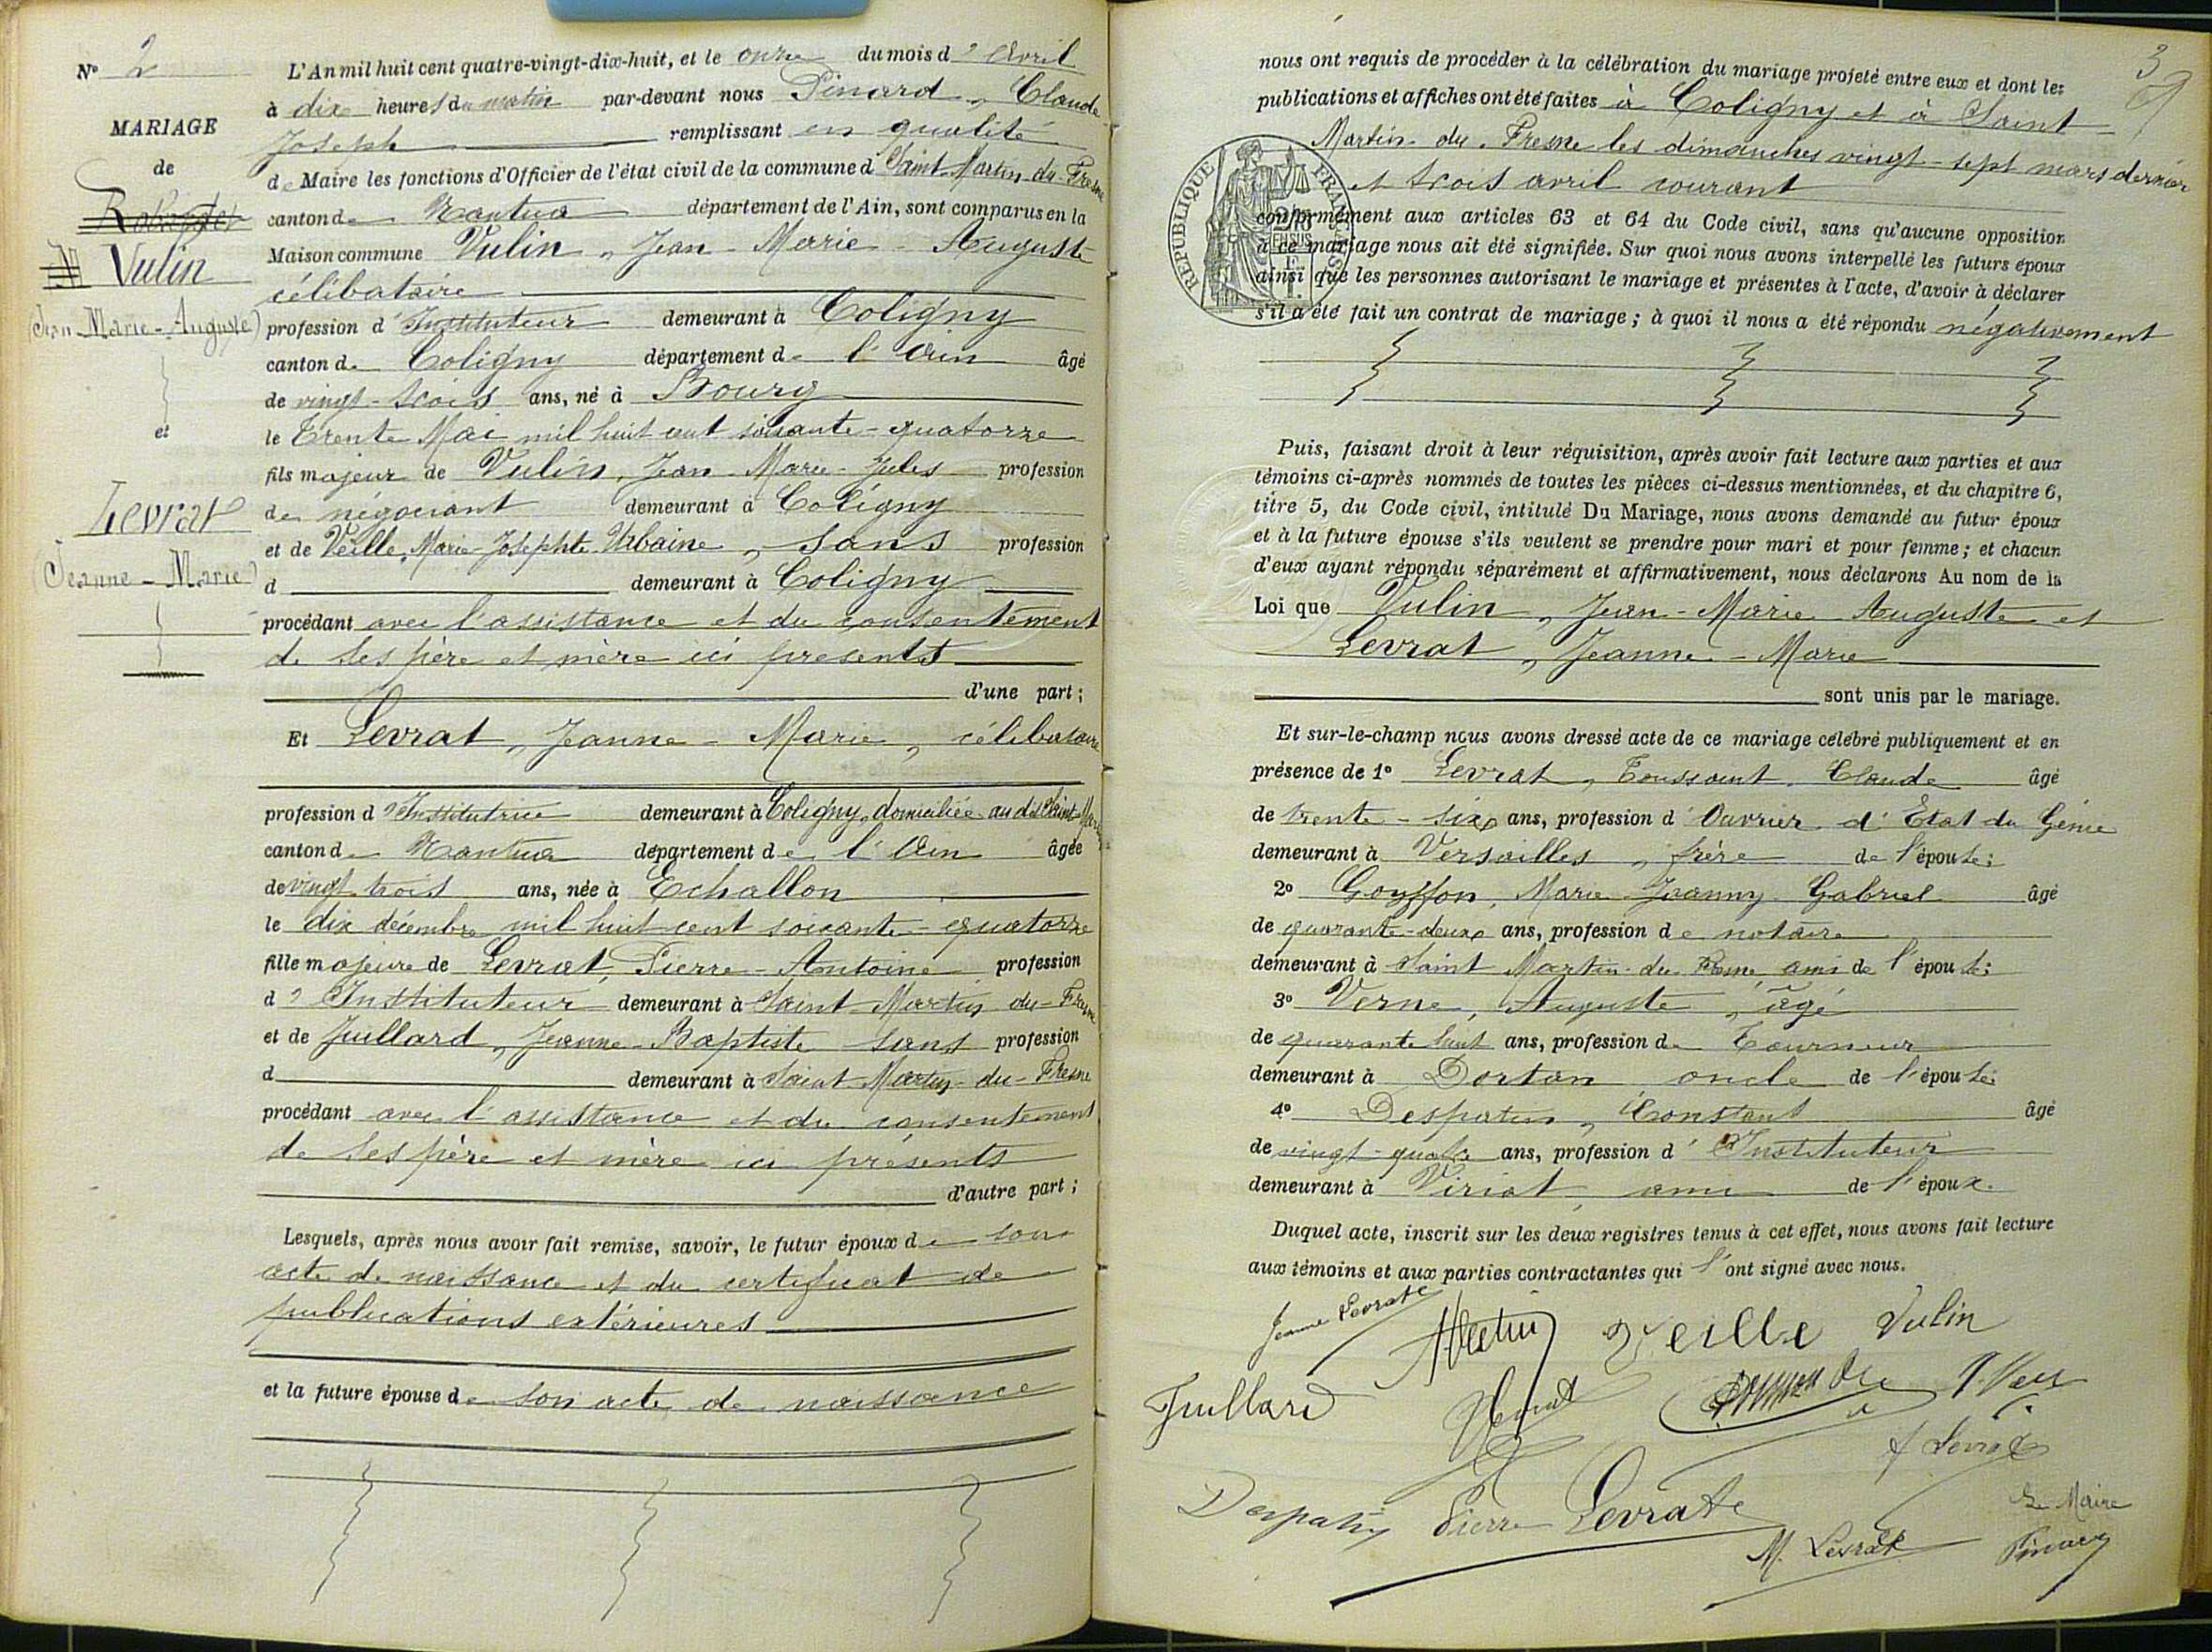 N° 2
MARIAGE
de
Vulin
(Jean-Marie-Auguste)
et
Levrat
(Jeanne-Marie)
L'An mil huit cent quatre-vingt-dix-huit, et le onze du mois d'Avril
à dix heures du matin par-devant nous Pinard, Claude
Joseph remplissant en qualité
de Maire les fonctions d'Officier de l'état civil de la commune d Saint-Martin-du-Fresne
canton de Nantua département de l'Ain, sont comparus en la
Maison commune Vulin, Jean-Marie-Auguste
célibataire
profession d'Instituteur demeurant à Coligny
canton de Coligny département de l'Ain âgé
de vingt-trois ans, né à Bourg
le Trente Mai mil huit cent soixante-quatorze
fils majeur de Vulin, Jean-Marie-Jules profession
de négociant demeurant à Coligny
et de Veille, Marie-Josephte Urbaine, sans profession
d demeurant à Coligny
procédant avec l'assistance et du consentement
de ses père et mère ici presents
d'une part;
Et Levrat, Jeanne-Marie, célibataire
profession d'Institutrice demeurant à Coligny, domiciliée au dit Saint-Martin
canton de Nantua département de l'Ain âgée
de vingt trois ans, née à Echallon
le dix décembre mil huit cent soixante-quatorze
fille majeure de Levrat, Pierre-Antoine profession
d'Instituteur demeurant à Saint Martin-du-Fresne
et de Juillard, Jeanne-Baptiste sans profession
d demeurant à Saint Martin-du-Fresne
procédant avec l'assistance et du consentement
de ses père et mère ici présents
d'autre part;
Lesquels, après nous avoir fait remise, savoir, le futur époux de son
acte de naissance et du certificat de
publications extérieures
et la future épouse de son acte de naissance
3
nous ont requis de procéder à la célébration du mariage projeté entre eux et dont les
publications et affiches ont été faites à Coligny et à Saint
Martin-du-Fresne les dimanches vingt-sept mars dernier
et trois avril courant
RÉPUBLIQUE FRANÇAISE
conformément aux articles 63 et 64 du Code civil, sans qu'aucune opposition
à ce mariage nous ait été signifiée. Sur quoi nous avons interpellé les futurs époux
ainsi que les personnes autorisant le mariage et présentes à l'acte, d'avoir à déclarer
s'il a été fait un contrat de mariage; à quoi il nous a été répondu négativement
Puis, faisant droit à leur réquisition, après avoir fait lecture aux parties et aux
témoins ci-après nommés de toutes les pièces ci-dessus mentionnées, et du chapitre 6,
titre 5, du Code civil, intitulé Du Mariage, nous avons demandé au futur époux
et à la future épouse s'ils veulent se prendre pour mari et pour femme; et chacun
d'eux ayant répondu séparément et affirmativement, nous déclarons Au nom de la
Loi que Vulin, Jean-Marie Auguste et
Levrat, Jeanne-Marie
sont unis par le mariage.
Et sur-le-champ nous avons dressé acte de ce mariage célébré publiquement et en
présence de 1° Levrat, Toussaint Claude âgé
de trente-six ans, profession d'Ouvrier d'Etat du Génie
demeurant à Versailles, frère de l'épouse;
2° Gouffon, Marie Joanny Gabriel âgé
de quarante-deux ans, profession de notaire
demeurant à Saint Martin-du-Fresne ami de l'épouse;
3° Verne, Auguste, âgé
de quarante huit ans, profession de Tourneur
demeurant à Dortan oncle de l'épouse;
4° Despatin, Constant âgé
de vingt-quatre ans, profession d'Instituteur
demeurant à Viriat ami de l'époux.
Duquel acte, inscrit sur les deux registres tenus à cet effet, nous avons fait lecture
aux témoins et aux parties contractantes qui l'ont signé avec nous.
Jeanne Levrat
Veille Vulin
Juillard
Levrat
Despatin Pierre Levrat
Le Maire
M. Levrat Pinard